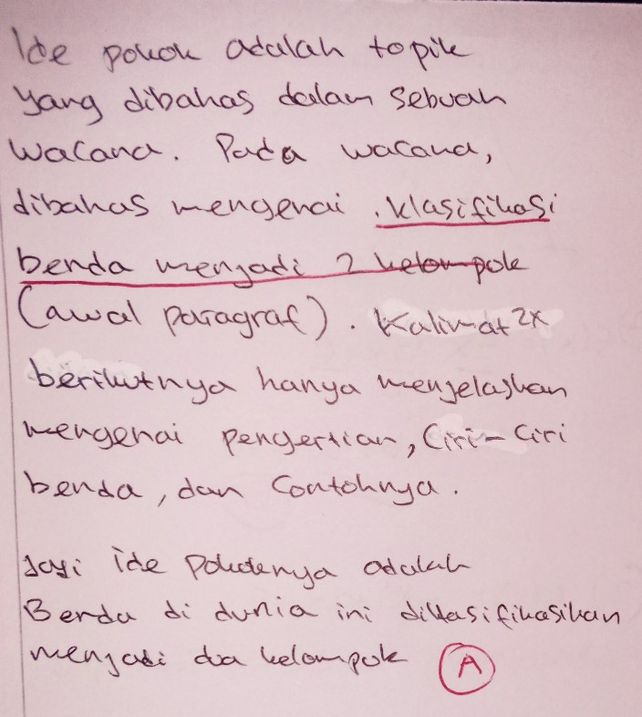 Ide pokok adalah topik
yang dibahas dalam sebuah
wacana. Pada wacana,
dibahas mengenai . klasifikasi
benda menjadi 2 kelompok
(awal paragraf). Kalimat2x
berikutnya hanya menjelaskan
mengenai pengertian, Ciri-Ciri
benda, dan Contohnya.
Jadi ide pokoknya adalah
Benda di dunia ini diklasifikasikan
menjadi dua kelompok A